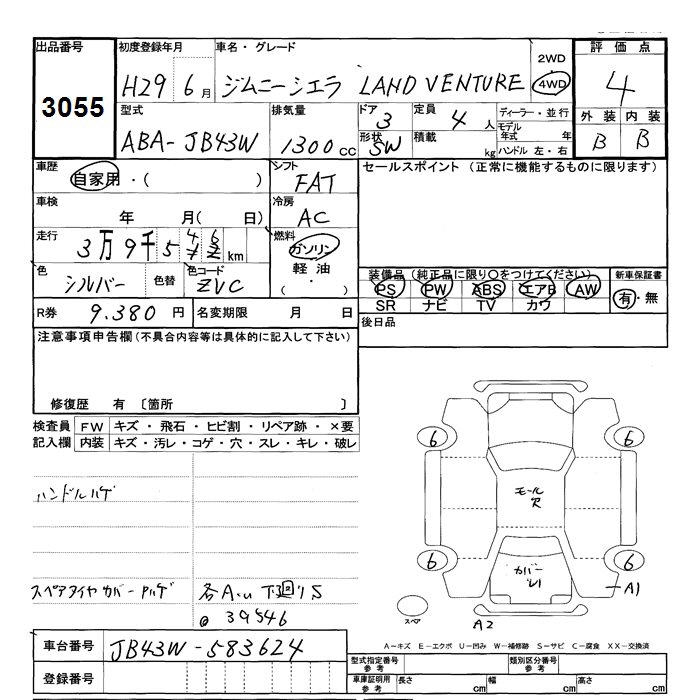 出品番号 初度登録年月 車名・グレード 2WD 4WD 評価点
3055 H29 6月 ジムニーシエラ LAND VENTURE 4
型式 排気量 ドア 定員 ディーラー・並行 外装 内装
ABA-JB43W 1300cc 3 4人 モデル年式 年 B B
形状 SW 積載 kg ハンドル 左・右
車歴 シフト セールスポイント (正常に機能するものに限ります)
自家用・( ) FAT
車検 冷房
年 月( 日) AC
走行 燃料
3万9千5 4 6 km ガソリン
色 色替 色コード 軽油
シルバー ZVC ( ・ )
装備品 (純正品に限り○をつけてください) 新車保証書
PS PW ABS エアB AW 有・無
SR ナビ TV カワ
R券 9.380円 名変期限 月 日 後日品
注意事項申告欄(不具合内容等は具体的に記入して下さい)
修復歴 有 〔箇所 〕
検査員 FW キズ・飛石・ヒビ割・リペア跡・×要
記入欄 内装 キズ・汚レ・コゲ・穴・スレ・キレ・破レ
6 6
ハンドルハゲ モール
穴
6 6
カバー
スペアタイヤカバー A1
@39546
スペア A2
A-キズ E-エクボ U-凹み W-補修跡 S-サビ C-腐食 XX-交換済
車台番号 JB43W-583624
登録番号
型式指定番号 参考 類別区分番号 参考
車庫証明用 参考 長さ cm 幅 cm 高さ cm